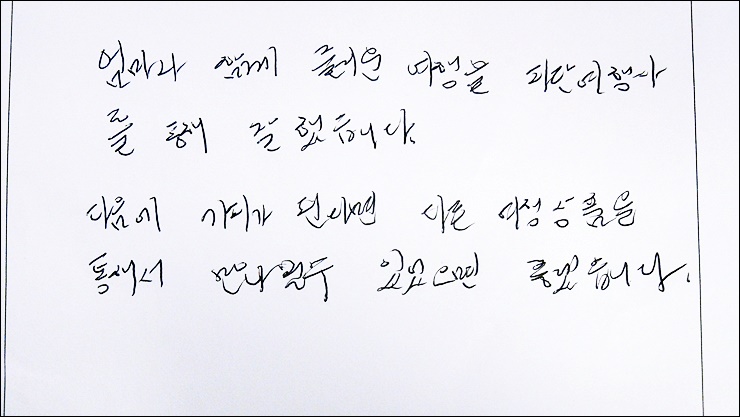 엄마와 함께 즐거운 여행을 파란여행사
를 통해 잘 했습니다.
다음에 기회가 된다면 다른 여행상품을
통해서 만나볼수 있었으면 좋겠습니다.